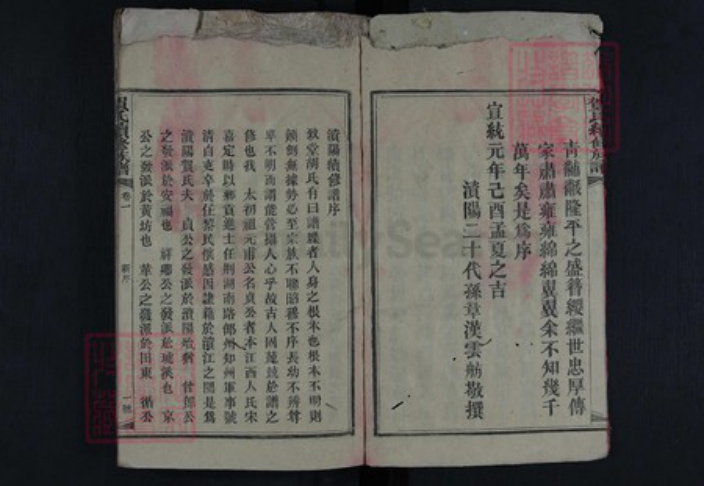 青緗㠎隆平之盛簪纓繼世忠厚傳
家肅肅雍雍綿綿翼翼余不知幾千
萬年矣是爲序
宣統元年己酉孟夏之吉
濆陽二十代孫章漢雲舫敬撰
濆陽續修譜序
敦堂胡氏有曰譜牒者人身之根本也根本不明則
顛倒無據勢必至宗族不聯昭穆不序長幼不辨尊
卑不明而謂能管攝人心乎故古人
修也我 太初祖元甫公名貞公者本江西人氏宋
嘉定時以鄉貢進士任荆湖南路邵州知州軍事號
清白吏卒於任黎民懷感因隷籍於濆江之間是爲
濆陽賀氏夫 貞公之發派於濆陽
之發派於安福也 祥卿公之發派於 也 京
公之發派於黄坊也 華公之發派於田東 循公
賀氏續修族譜
卷一
新序
一號